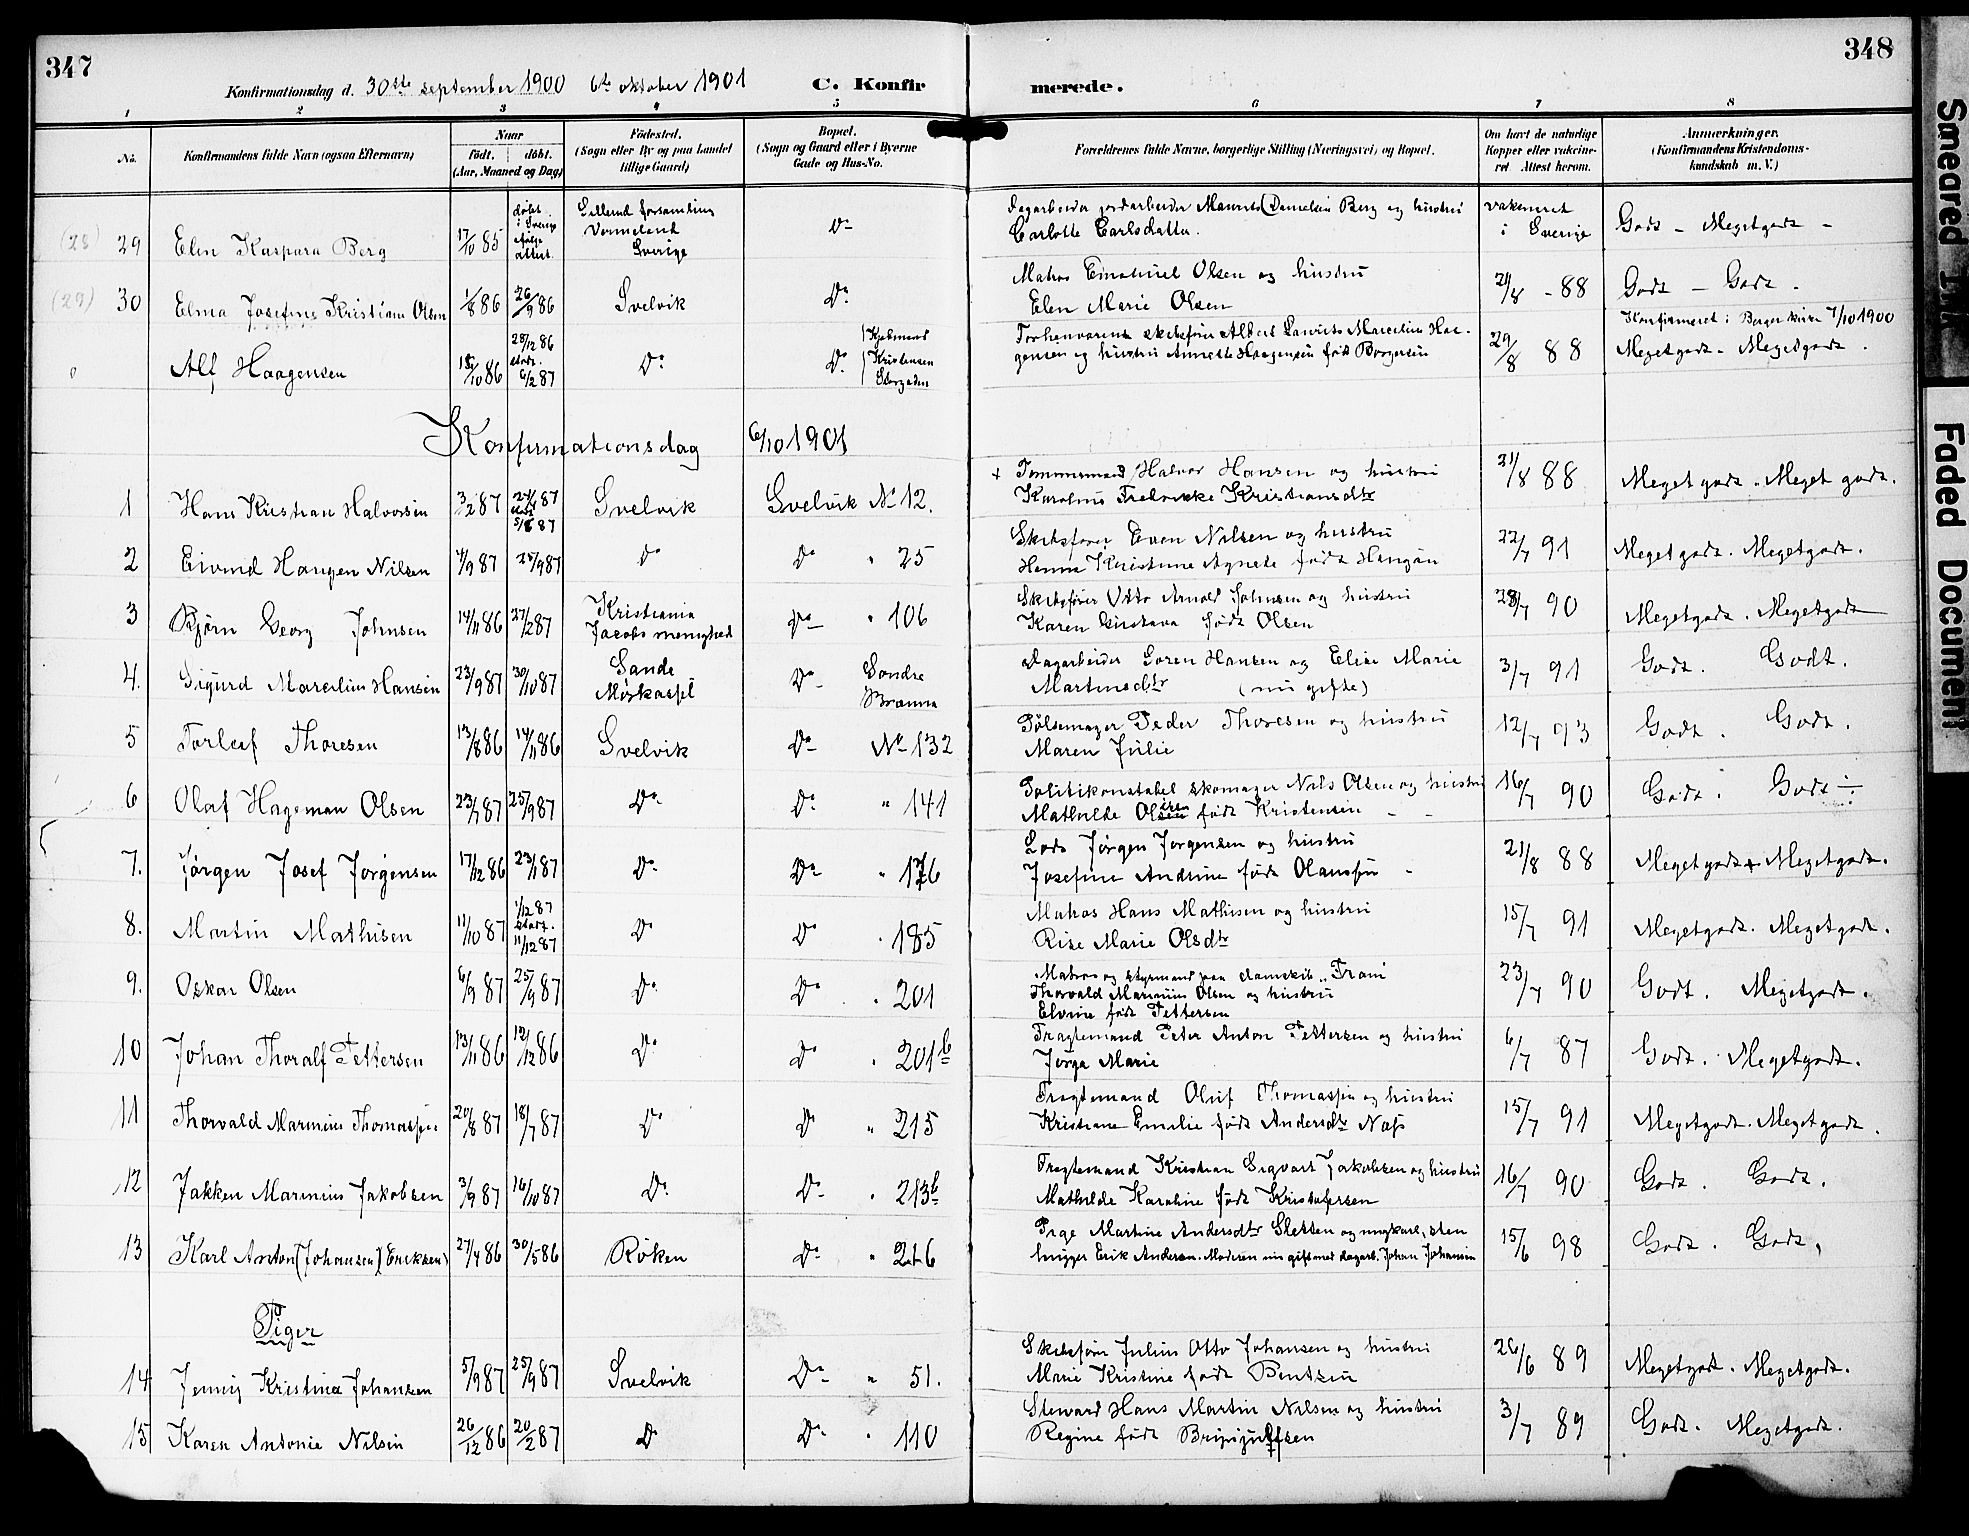 347
348
Konfirmationsdag d. 30ste september 1900 6te oktober 1901
C. Konfirmerede.
1 2 3 4 5 6 7 8
No.
Konfirmandens fulde Navn (ogsaa Efternavn)
Naar
født. døbt.
(Aar, Maaned og Dag)
Fødested.
(Sogn eller By og paa Landet
tillige Gaard)
Bopæl.
(Sogn og Gaard eller i Byerne
Gade og Hus-No.
Forældrenes fulde Navne, borgerlige Stilling (Næringsvei) og Bopæl.
Om havt de naturlige
Kopper eller vakcine-
ret Attest herom.
Anmærkninger.
(Konfirmandens Kristendoms-
kundskab m. V.)
(28) 29 Elen Kaspara Berg 17/10 85 døbt i Sverige ifølge attest Sillerud forsamling Vermeland Sverige Do
Dagarbeider jordarbeider Berg og hustru
Carlotte Carlsdatter.
vakcineret i Sverige Godt – Megetgodt –
(29) 30 Elma Josefine Kristiane Olsen 1/8 86 26/9 86 Svelvik Do.
Matros Emanuel Olsen og hustru
Elen Marie Olsen
21/8 - 88 Godt – Godt.
Konfirmeret i Berger kirke 7/10 1900
0 Alf Haagensen 18/10 86 28/12 86 stadf. 6/2 87 Do. Do. Kjøbmand Kristensen Storgaden
Forhenværende skibsfører Albert Lauritz Marcelius Haa-
gensen og hustru Annette Haagensen født Borgersen
29/8 88 Megetgodt. Megetgodt.
Konfirmationsdag 6/10 1901
1 Hans Kristian Halvorsen 3/2 87 24/4 87 5/6 87 Svelvik Svelvik No 12.
+ Tømmermand Halvor Hansen og hustru
Karoline Fredrikke Kristiansdtr
21/8 88 Meget godt. Meget godt.
2 Eivind Haugen Nilsen 4/9 87 25/9 87 Do Do " 25
Skibsfører Even Nilsen og hustru
Hanna Kristine Agnete født Haugan
22/7 91 Megetgodt. Megetgodt.
3 Bjørn Georg Johnsen 14/11 86 27/2 87 Kristiania Jacobs menighed Do " 106
Skibsfører Otto Arnold Johnsen og hustru
Karen Gustava født Olsen
28/7 90 Megetgodt. Megetgodt
4. Sigurd Marcelius Hansen 23/9 87 30/10 87 Sande Mørkassel Do Søndre Brænna
Dagarbeider Søren Hansen og Elise Marie
Martinsdtr (nu gifte)
3/7 91 Godt. Godt.
5 Torleif Thoresen 13/8 86 14/11 86 Svelvik Do No 132
Pølsemager Peder Thoresen og hustru
Maren Julie
12/7 93 Godt. Godt.
6 Olaf Hageman Olsen 23/7 87 25/9 87 Do. Do. " 141
Politikonstabel skomager Nils Olsen og hustru
Mathilde Olsen født Kristensen
16/7 90 Godt. Godt
7. Jørgen Josef Jørgensen 17/12 86 23/1 87 Do. Do " 176
Lods Jørgen Jørgensen og hustru
Josefine Andrine født Olaussen
21/8 88 Megetgodt + Megetgodt.
8. Martin Mathisen 11/10 87 1/12 87 stadf. 11/12 87 Do Do " 185
Matros Hans Mathisen og hustru
Rise Marie Olsdtr
15/7 91 Megetgodt. Megetgodt.
9. Oskar Olsen 6/9 87 25/9 87 Do. Do. " 201
Matros og styrmand paa damskib "Fram
Thorvald Marinius Olsen og hustru
Elvine født Pettersen
23/7 90 Godt. Megetgodt.
10 Johan Thoralf Pettersen 13/11 86 12/12 86 Do. Do " 201b
Fragtemand Peter Anton Pettersen og hustru
Jørga Marie
6/7 87 Godt. Megetgodt.
11 Thorvald Marinius Thomassen 20/6 87 18/7 87 Do. Do " 215
Fragtemand Oluf Thomassen og hustru
Kristiane Emilie født Andersdtr Næss
15/7 91 Megetgodt. Megetgodt.
12 Jakken Marinius Jakobsen 3/9 87 16/10 87 Do. Do " 213b
Fragtemand Kristian Sigvart Jakobsen og hustru
Mathilde Karoline født Kristofersen
16/7 90 Godt. Godt.
13 Karl Anton (Johansen) Eriksen 27/4 86 30/5 86 Røken Do. " 216
Pige Martine Andersdtr Sletten og ungkarl, sten
hugger Erik Andersen. Moderen nu gift med dagarb. Johan Johansen
15/6 98 Godt. Godt.
Piger
14 Jenny Kristine Johansen 5/9 87 25/9 87 Svelvik Do " 51.
Skibsfører Julius Otto Johansen og hustru
Marie Kristine født Bentzen
26/6 89 Megetgodt. Megetgodt.
15 Karen Antonie Nilsen 26/12 86 20/2 87 Do Do. " 110
Steward Hans Martin Nilsen og hustru
Regine født Brynjulfsen
3/7 89 Godt. Megetgodt.
Smeared Ink
Faded Document